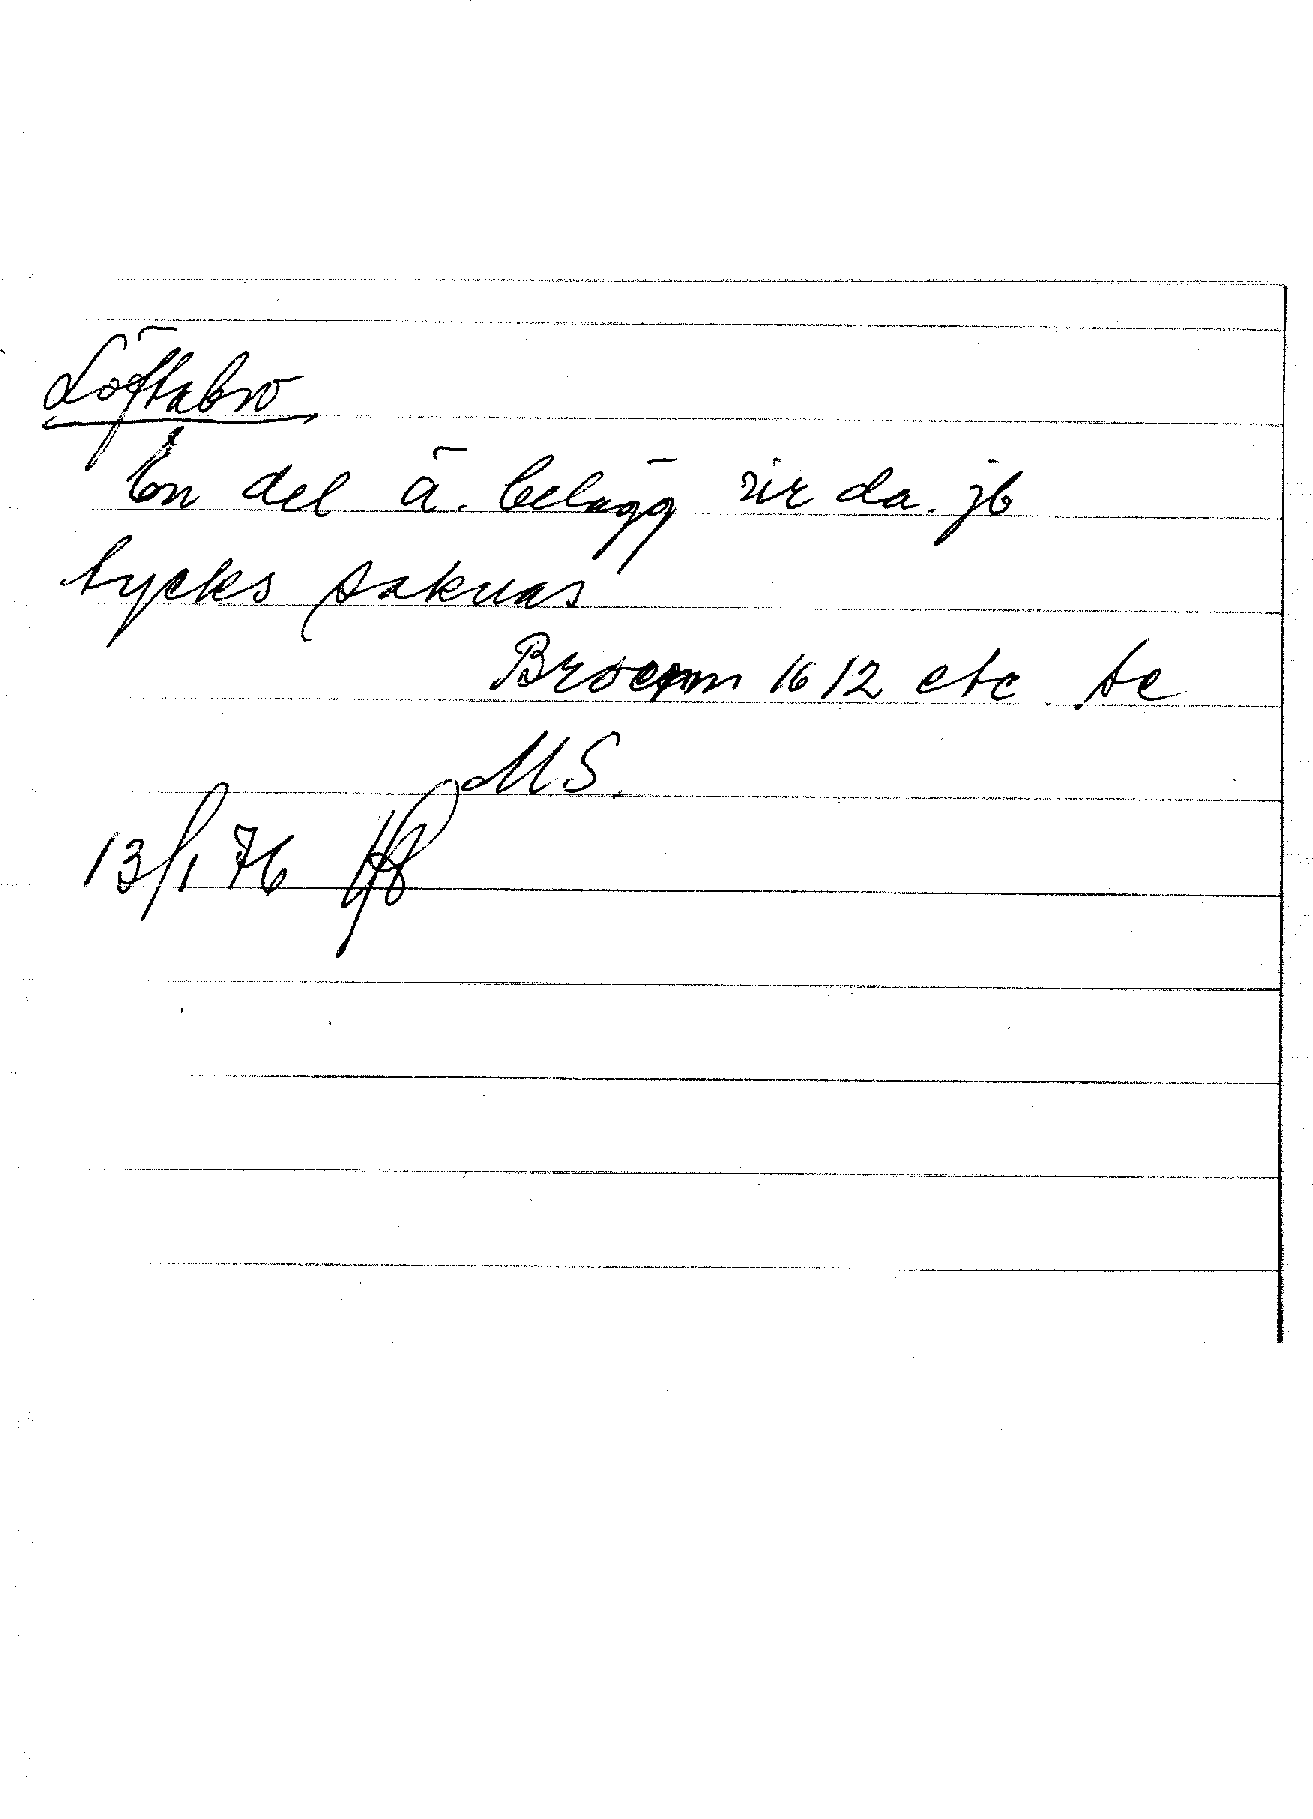 Löftabro
En del ä. belägg ur da. jb
tycks saknas
Broenn 1612 etc se
MS.
13/1 76